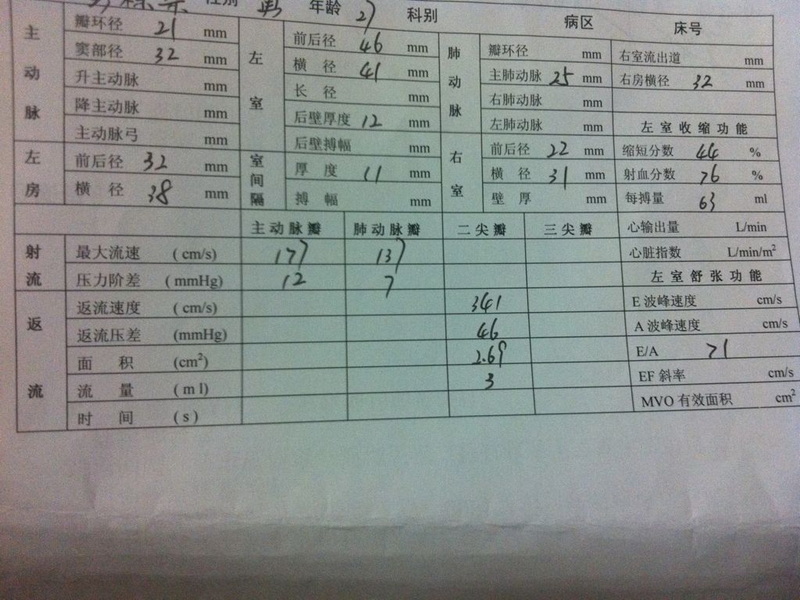 性别 男 年龄 27 科别 病区 床号
主动脉
瓣环径 21 mm
窦部径 32 mm
升主动脉 mm
降主动脉 mm
主动脉弓 mm
左房
前后径 32 mm
横径 38 mm
左室
前后径 46 mm
横径 41 mm
长径 mm
后壁厚度 12 mm
后壁搏幅 mm
室间隔
厚度 11 mm
搏幅 mm
肺动脉
瓣环径 mm
主肺动脉 25 mm
右肺动脉 mm
左肺动脉 mm
右室
前后径 22 mm
横径 31 mm
壁厚 mm
右室流出道 mm
右房横径 32 mm
左室收缩功能
缩短分数 44 %
射血分数 76 %
每搏量 63 ml
心输出量 L/min
心脏指数 L/min/m²
左室舒张功能
E波峰速度 cm/s
A波峰速度 cm/s
E/A >1
EF斜率 cm/s
MVO有效面积 cm²
主动脉瓣 肺动脉瓣 二尖瓣 三尖瓣
射流
最大流速 (cm/s) 177 137
压力阶差 (mmHg) 12 7
返流
返流速度 (cm/s) 341
返流压差 (mmHg) 46
面积 (cm²) 2.69
流量 (ml) 3
时间 (s)